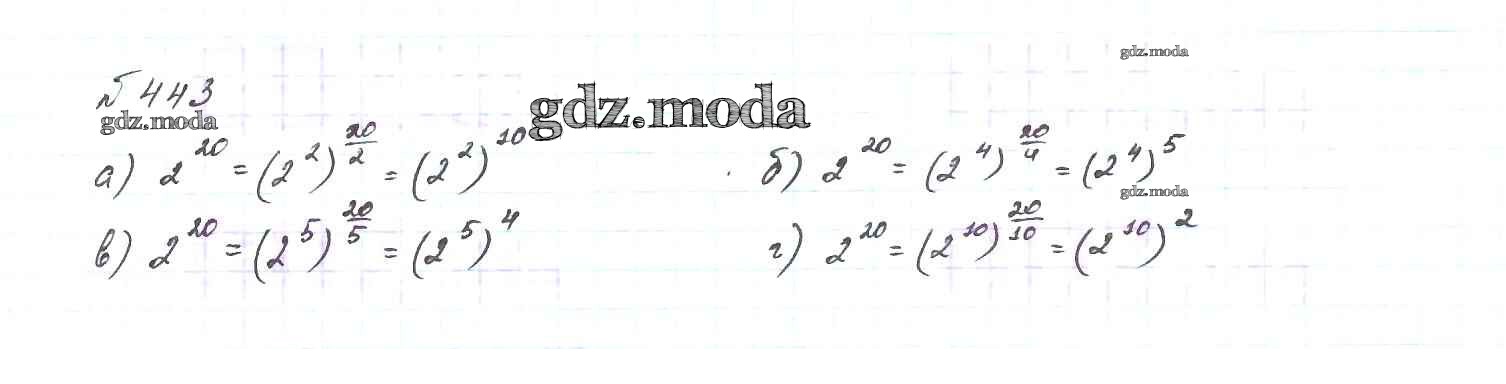 gdz.moda
№ 443
gdz.moda
gdz.moda
а) 2^20 = (2^2)^(20/2) = (2^2)^10
б) 2^20 = (2^4)^(20/4) = (2^4)^5
gdz.moda
в) 2^20 = (2^5)^(20/5) = (2^5)^4
г) 2^20 = (2^10)^(20/10) = (2^10)^2